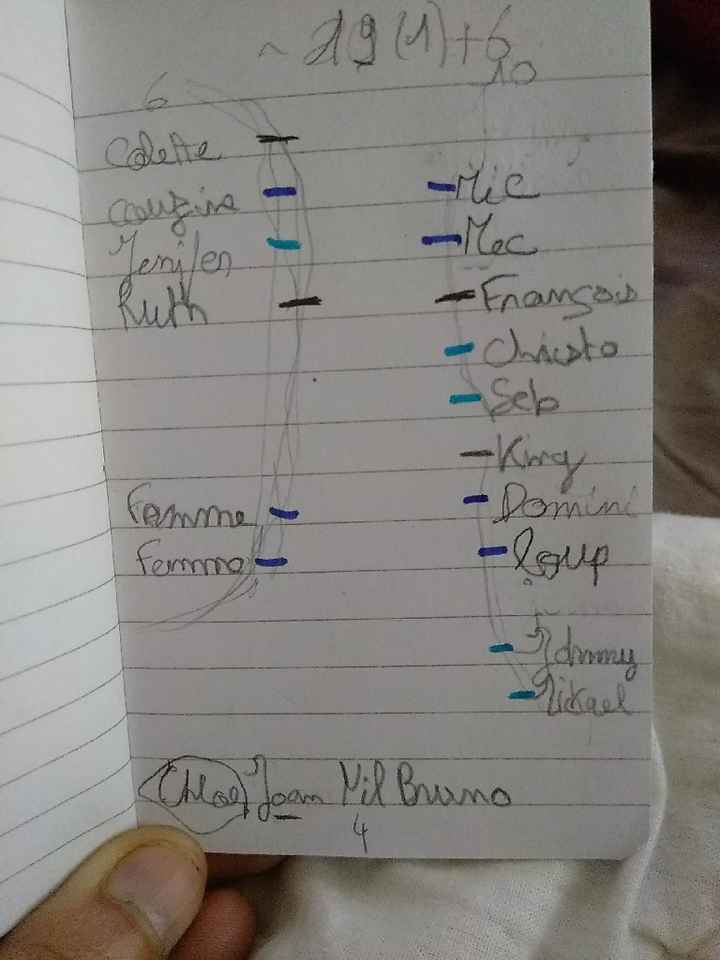 ~ 19 (1) + 6
10
6
Colette
couzine
Mic
Jenifen
Mec
Ruth
François
Christo
Seb
King
Femme
Domini
Femme
Loup
Johnny
Mickael
Chloe Joan Bruno
4